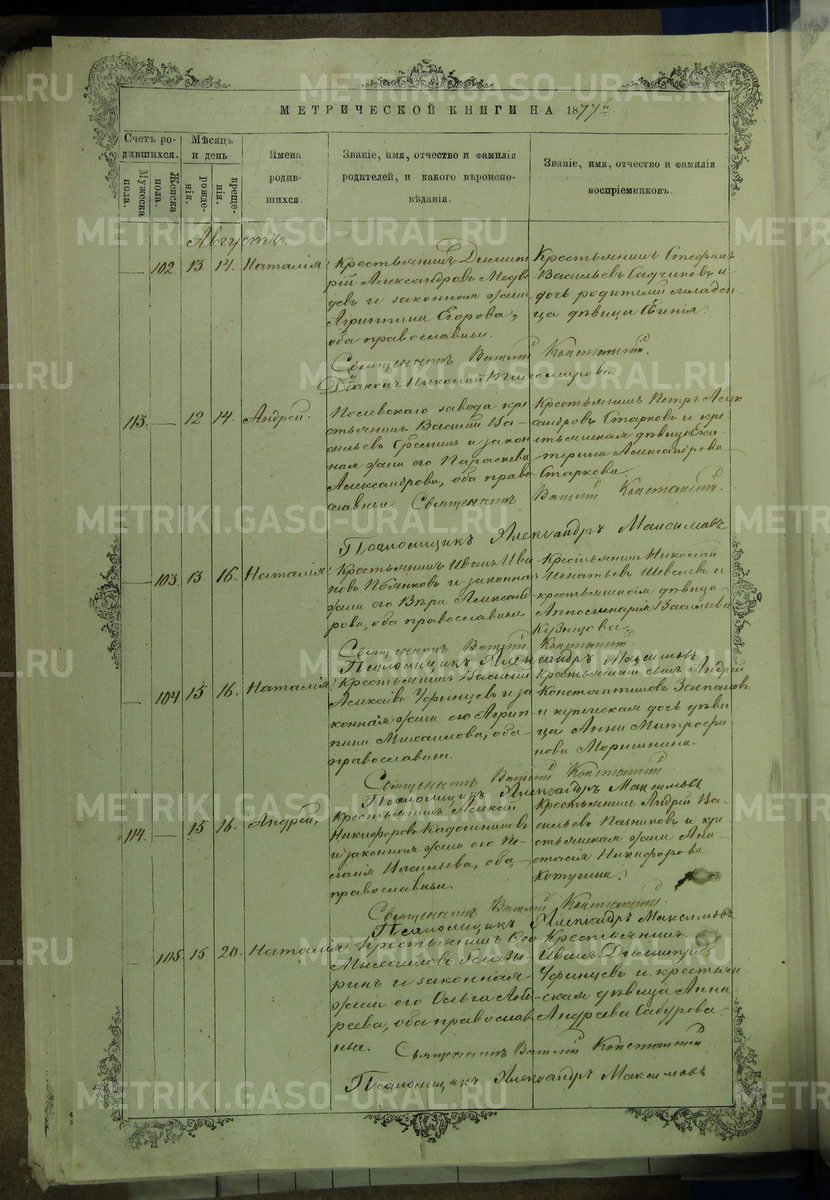 METRIKI.GASO-URAL.RU
МЕТРИЧЕСКОЙ КНИГИ НА 1877
Счетъ родившихся.
Мѣсяцъ и день
Мужеска пола.
Женска пола.
рожденія.
крещенія.
Имена родившихся.
Званіе, имя, отчество и фамилія родителей, и какого вѣроисповѣданія.
Званіе, имя, отчество и фамилія воспріемниковъ.
Августъ.
102 13 14. Наталія
Крестьянинъ Димитрій Александровъ Медведевъ и законная жена Агриппина Егорова, оба православные.
Крестьянинъ Стефанъ Васильевъ Садчиковъ и дочь родителей младенца дѣвица Евгенія.
Священникъ Константинъ.
Діаконъ Николай
113. 12 14. Андрей.
Полевскаго завода крестьянинъ Василій Васильевъ и законная жена его Параскева Александрова, оба православные
Крестьянинъ Петръ Александровъ Старковъ и крестьянская дѣвица Екатерина Александрова Старкова.
Священникъ Константинъ.
Псаломщикъ Александръ Максимовъ
103. 13 16. Наталія
Крестьянинъ Иванъ Ивановъ и законная жена его Вѣра Александрова, оба православные
Крестьянинъ Николай Игнатьевъ Шевелевъ и крестьянская дѣвица Аполлинарія Васильева Кузнецова.
Священникъ Константинъ
Псаломщикъ Александръ Максимовъ
104. 15 16. Наталія
Крестьянинъ Василій Алексѣевъ и законная жена его Агриппина Михаилова, оба православные.
Крестьянскій сынъ Андрей Константиновъ и купеческая дочь дѣвица Анна Митрофанова
Священникъ Константинъ
Псаломщикъ Александръ Максимовъ
114. 15 16. Андрей,
Крестьянинъ Алексѣй Никифоровъ Кадошниковъ и законная жена его Пелагія Васильева, оба православные.
Крестьянинъ Андрей Васильевъ и крестьянская жена Анастасія Никифорова
Священникъ Константинъ.
Псаломщикъ Александръ Максимовъ
105. 15 20. Наталія
Крестьянинъ Михаиловъ и законная жена его Ольга Андреева, оба православные.
Крестьянинъ Иванъ Димитріевъ и крестьянская дѣвица Анна Андреева Сабурова.
Священникъ Константинъ
Псаломщикъ Александръ Максимовъ